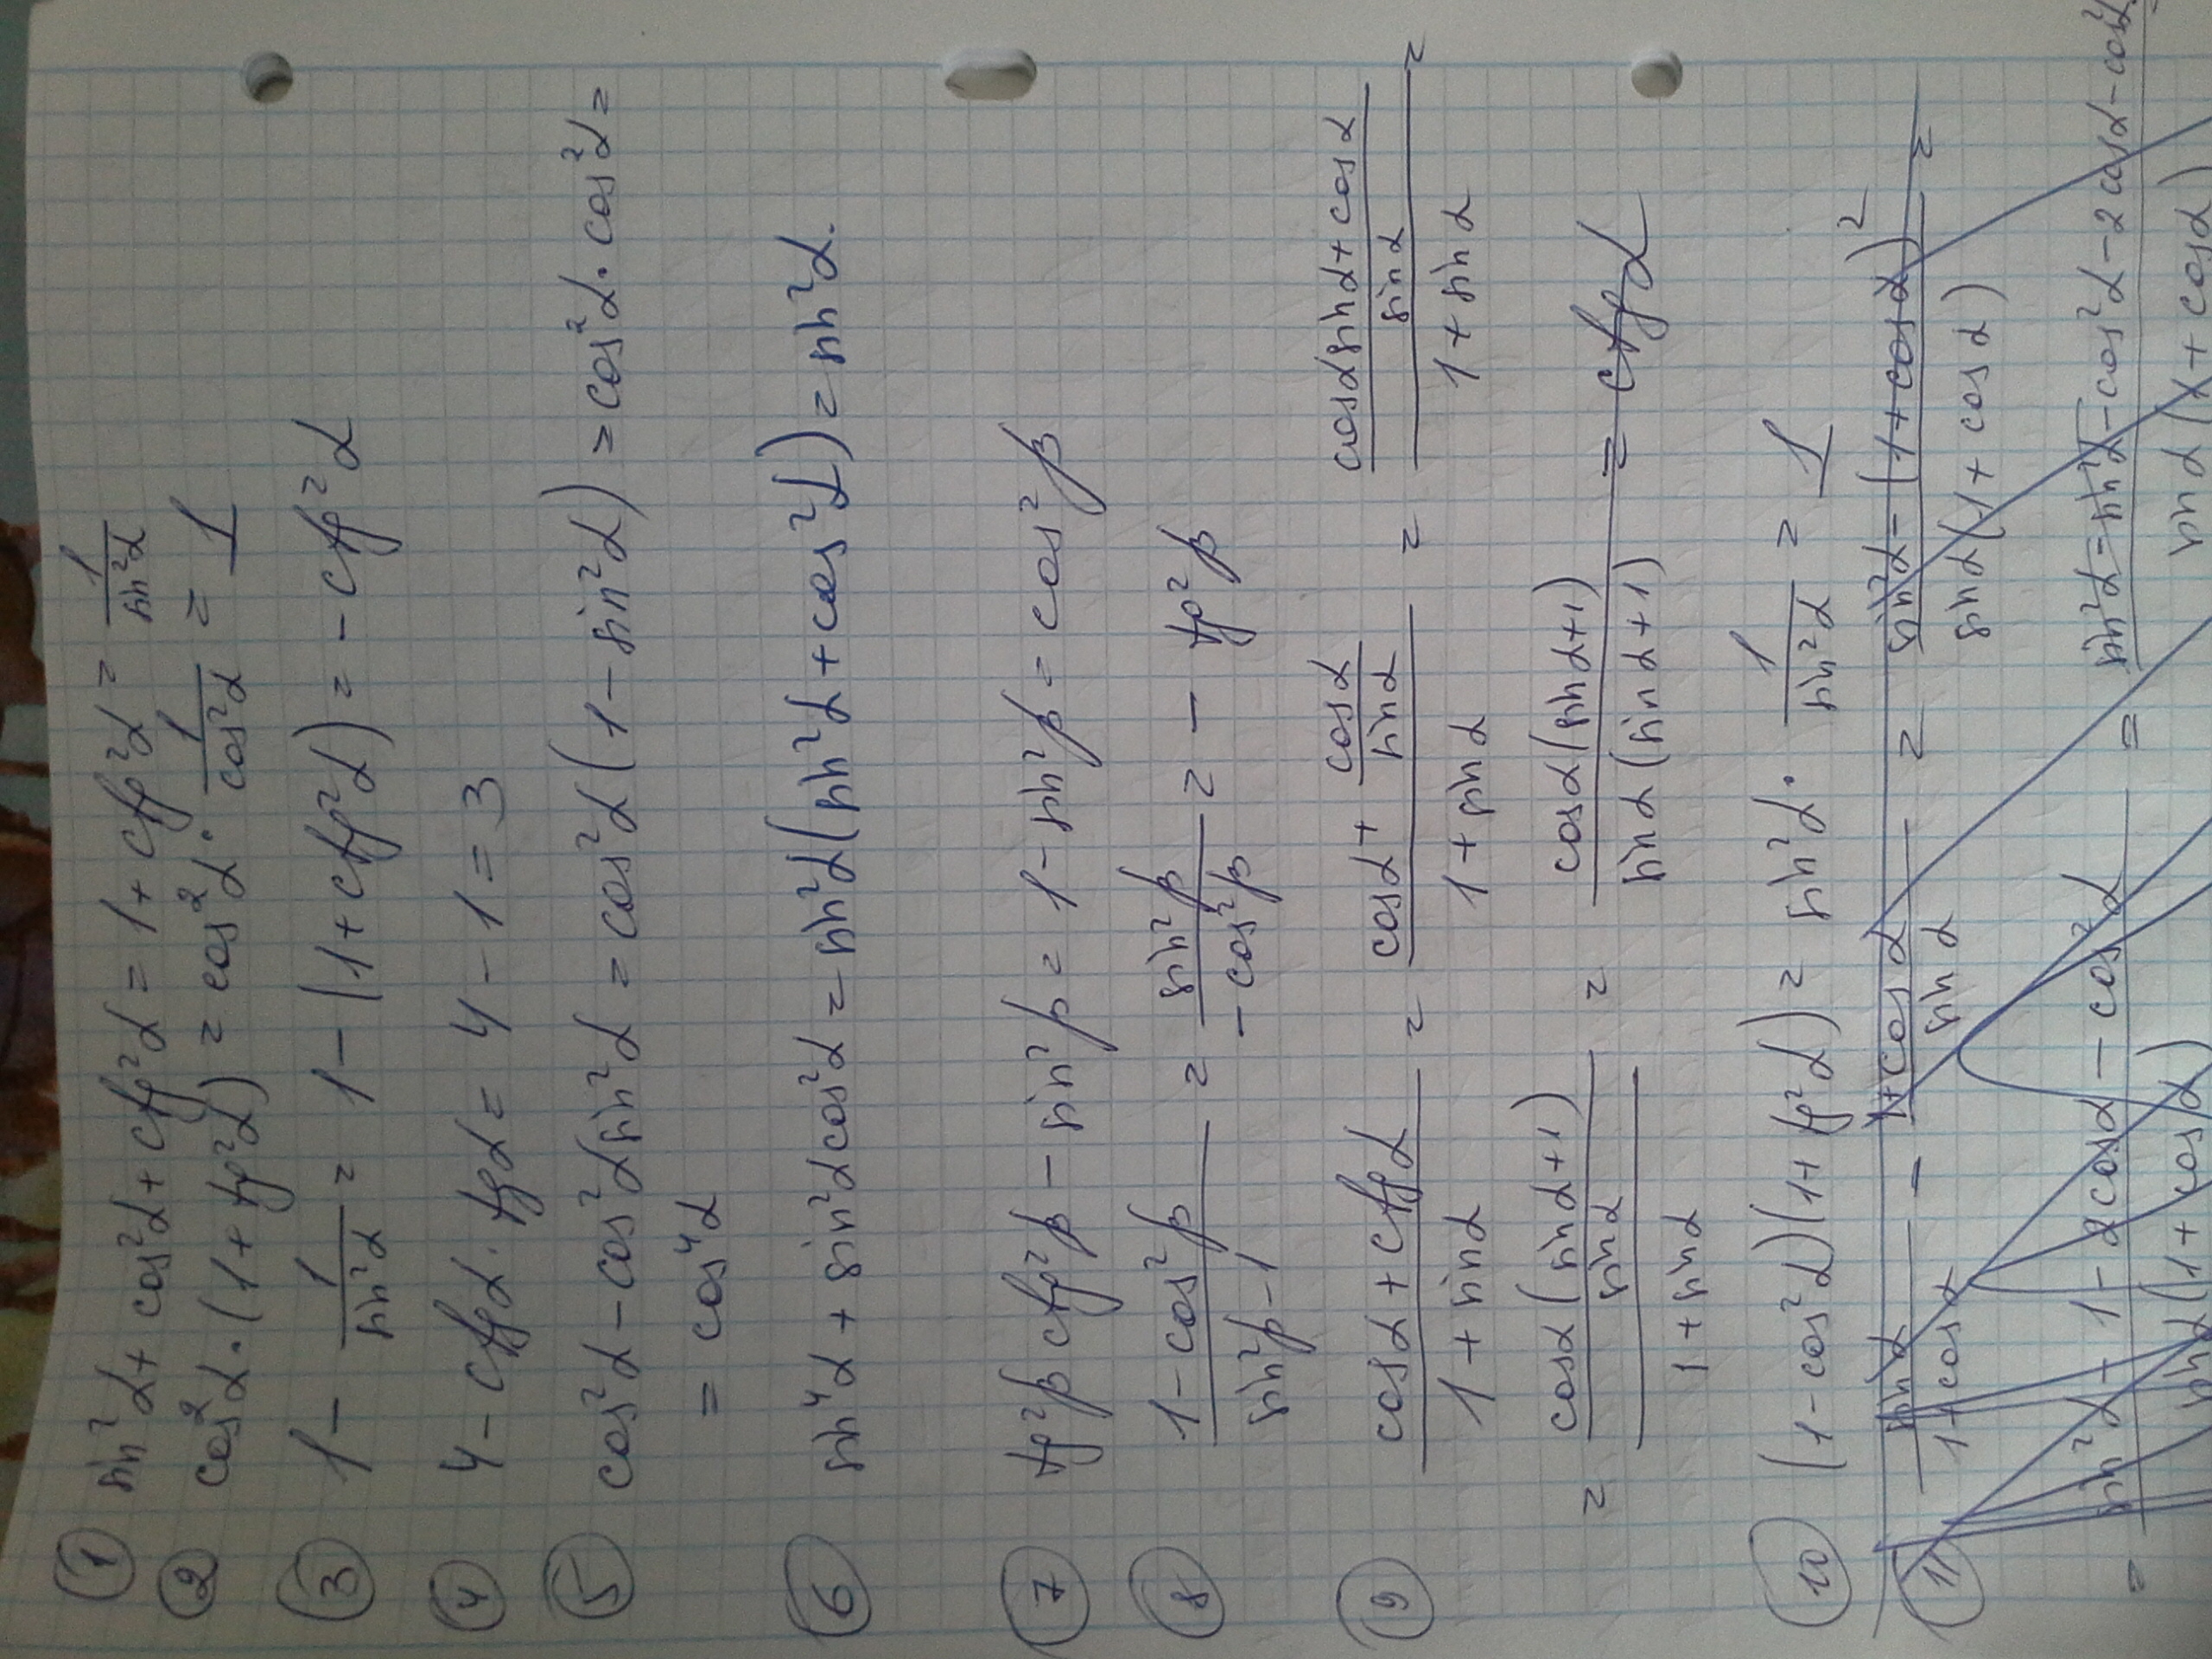 ① sin²α + cos²α + ctg²α = 1 + ctg²α = 1/sin²α
② cos²α · (1 + tg²α) = cos²α · 1/cos²α = 1
③ 1 − 1/sin²α = 1 − (1 + ctg²α) = − ctg²α
④ 4 − ctgα · tgα = 4 − 1 = 3
⑤ cos²α − cos²α sin²α = cos²α (1 − sin²α) = cos²α · cos²α =
= cos⁴α
⑥ sin⁴α + sin²α cos²α = sin²α (sin²α + cos²α) = sin²α.
⑦ tg²β ctg²β − sin²β = 1 − sin²β = cos²β
⑧ (1 − cos²β)/(sin²β − 1) = sin²β/(− cos²β) = − tg²β
⑨ (cosα + ctgα)/(1 + sinα) = (cosα + cosα/sinα)/(1 + sinα) = ((cosα sinα + cosα)/sinα)/(1 + sinα) =
= (cosα (sinα + 1)/sinα)/(1 + sinα) = cosα (sinα + 1)/(sinα (sinα + 1)) = ctgα
⑩ (1 − cos²α)(1 + tg²α) = sin²α · 1/sin²α = 1
⑪ sinα/(1 + cosα) − (1 + cosα)/sinα = (sin²α − (1 + cosα)²)/(sinα (1 + cosα)) =
= (sin²α − 1 − 2cosα − cos²α)/(sinα (1 + cosα)) = (sin²α − sin²α − cos²α − 2cosα − cos²α)/(sinα (1 + cosα))